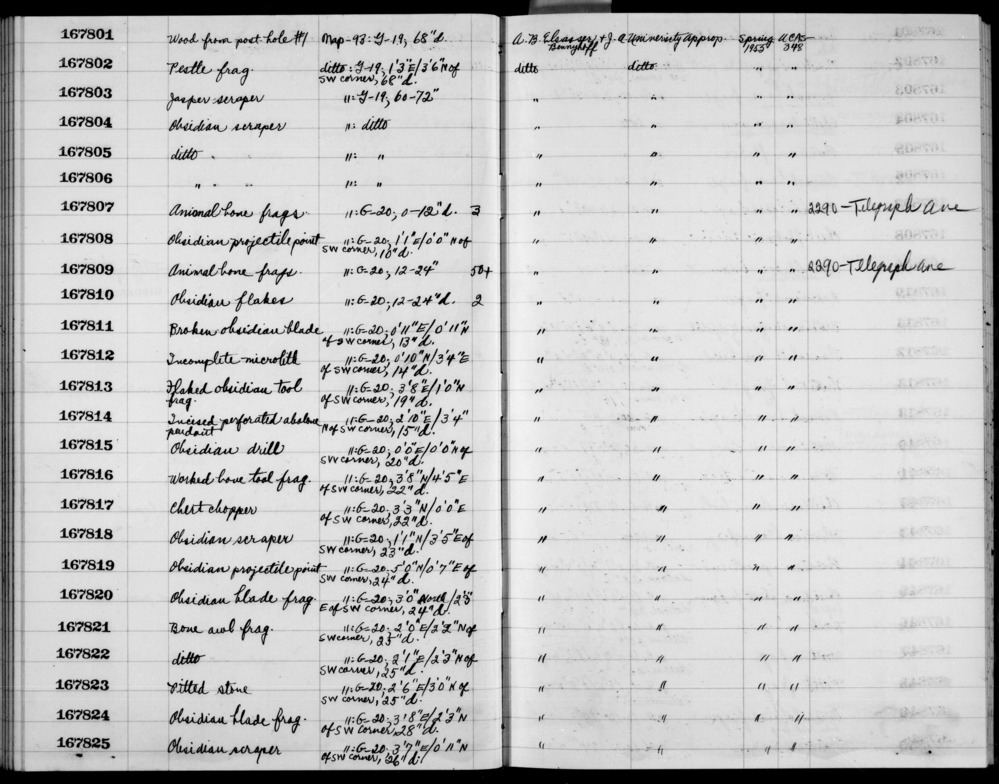 167801 Wood from post hole #1 Map-93: Y-19, 68"d. A. B. Elsasser, + J. A. University Approp. Spring UCAS-
Bennyhoff 1955 348
167802 Pestle frag. ditto: Y-19; 1'3"E/3'6"N of ditto ditto " "
SW corner, 68"d.
167803 Jasper scraper ": Y-19; 60-72" " " " "
167804 Obsidian scraper ": ditto " " " "
167805 ditto ": " " " " "
167806 " " " ": " " " " "
167807 Animal bone frags. ": G-20; 0-12"d. 3 " " " " 2290-Telegraph Ave
167808 Obsidian projectile point ": G-20; 1'1"E/0'0"N of " " " "
SW corner, 10"d.
167809 Animal bone frags. ": G-20; 12-24" 50+ " " " " 2290-Telegraph Ave
167810 Obsidian flakes ": G-20; 12-24"d. 2 " " " "
167811 Broken obsidian blade ": G-20; 0'11"E/0'11"N " " " "
of SW corner, 13"d.
167812 Incomplete microlith ": G-20; 0'10"N/3'4"E " " " "
of SW corner, 14"d.
167813 Flaked obsidian tool ": G-20; 3'8"E/1'0"N " " " "
frag. of SW corner, 19"d.
167814 Incised perforated abalone ": G-20; 2'10"E/3'4" " " " "
pendant N of SW corner, 15"d.
167815 Obsidian drill ": G-20; 0'0"E/0'0"N of " " " "
SW corner, 20"d.
167816 Worked bone tool frag. ": G-20; 3'8"N/4'5"E " " " "
of SW corner, 22"d.
167817 Chert chopper ": G-20; 3'3"N/0'0"E " " " "
of SW corner, 22"d.
167818 Obsidian scraper ": G-20; 1'1"N/3'5"E of " " " "
SW corner, 23"d.
167819 Obsidian projectile point ": G-20; 5'0"N/0'7"E of " " " "
SW corner, 24"d.
167820 Obsidian blade frag. ": G-20; 3'0" North/2'3" " " " "
E of SW corner, 24"d.
167821 Bone awl frag. ": G-20; 2'0"E/2'2"N of " " " "
SW corner, 25"d.
167822 ditto ": G-20; 2'1"E/2'3"N of " " " "
SW corner, 25"d.
167823 Pitted stone ": G-20; 2'6"E/3'0"N of " " " "
SW corner, 25"d.
167824 Obsidian blade frag. ": G-20; 3'8"E/2'3"N " " " "
of SW corner, 28"d.
167825 Obsidian scraper ": G-20; 3'7"E/0'11"N " " " "
of SW corner, 26"d.